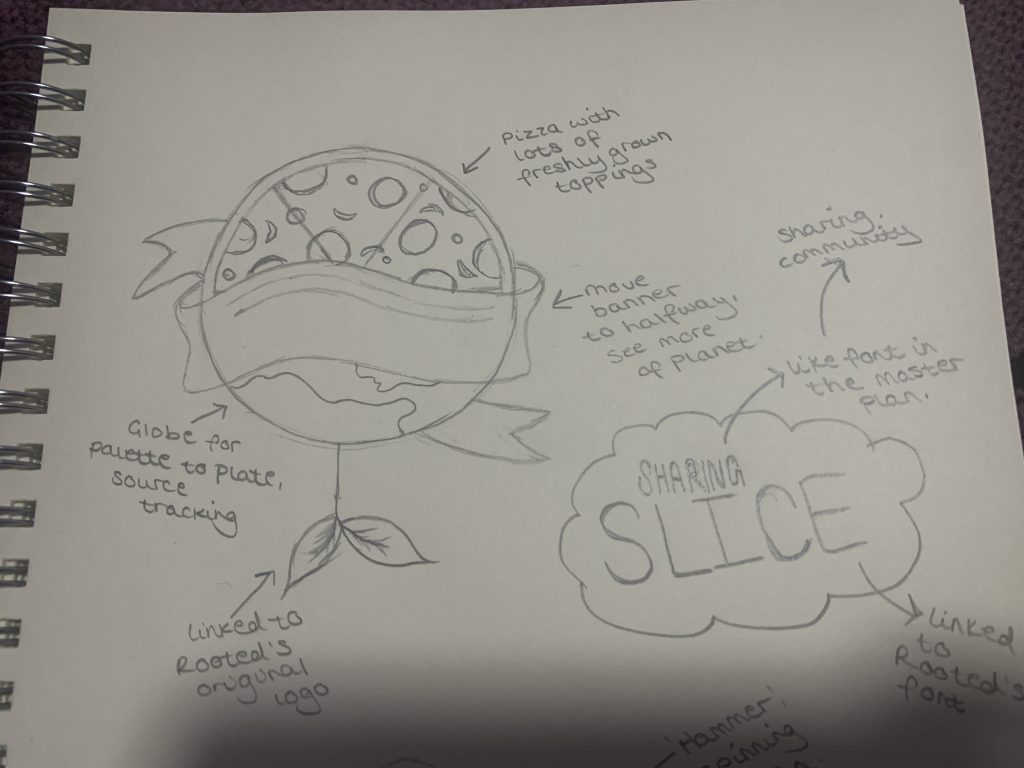 Pizza with
lots of
freshly grown
toppings
sharing,
community
move
banner
to halfway,
see more
of planet.
like font in
the master
plan.
Globe for
palette to plate,
source
tracking
SHARING
SLICE
linked to
Rooted's
original
logo
linked
to
Rooted's
font
Hammer: